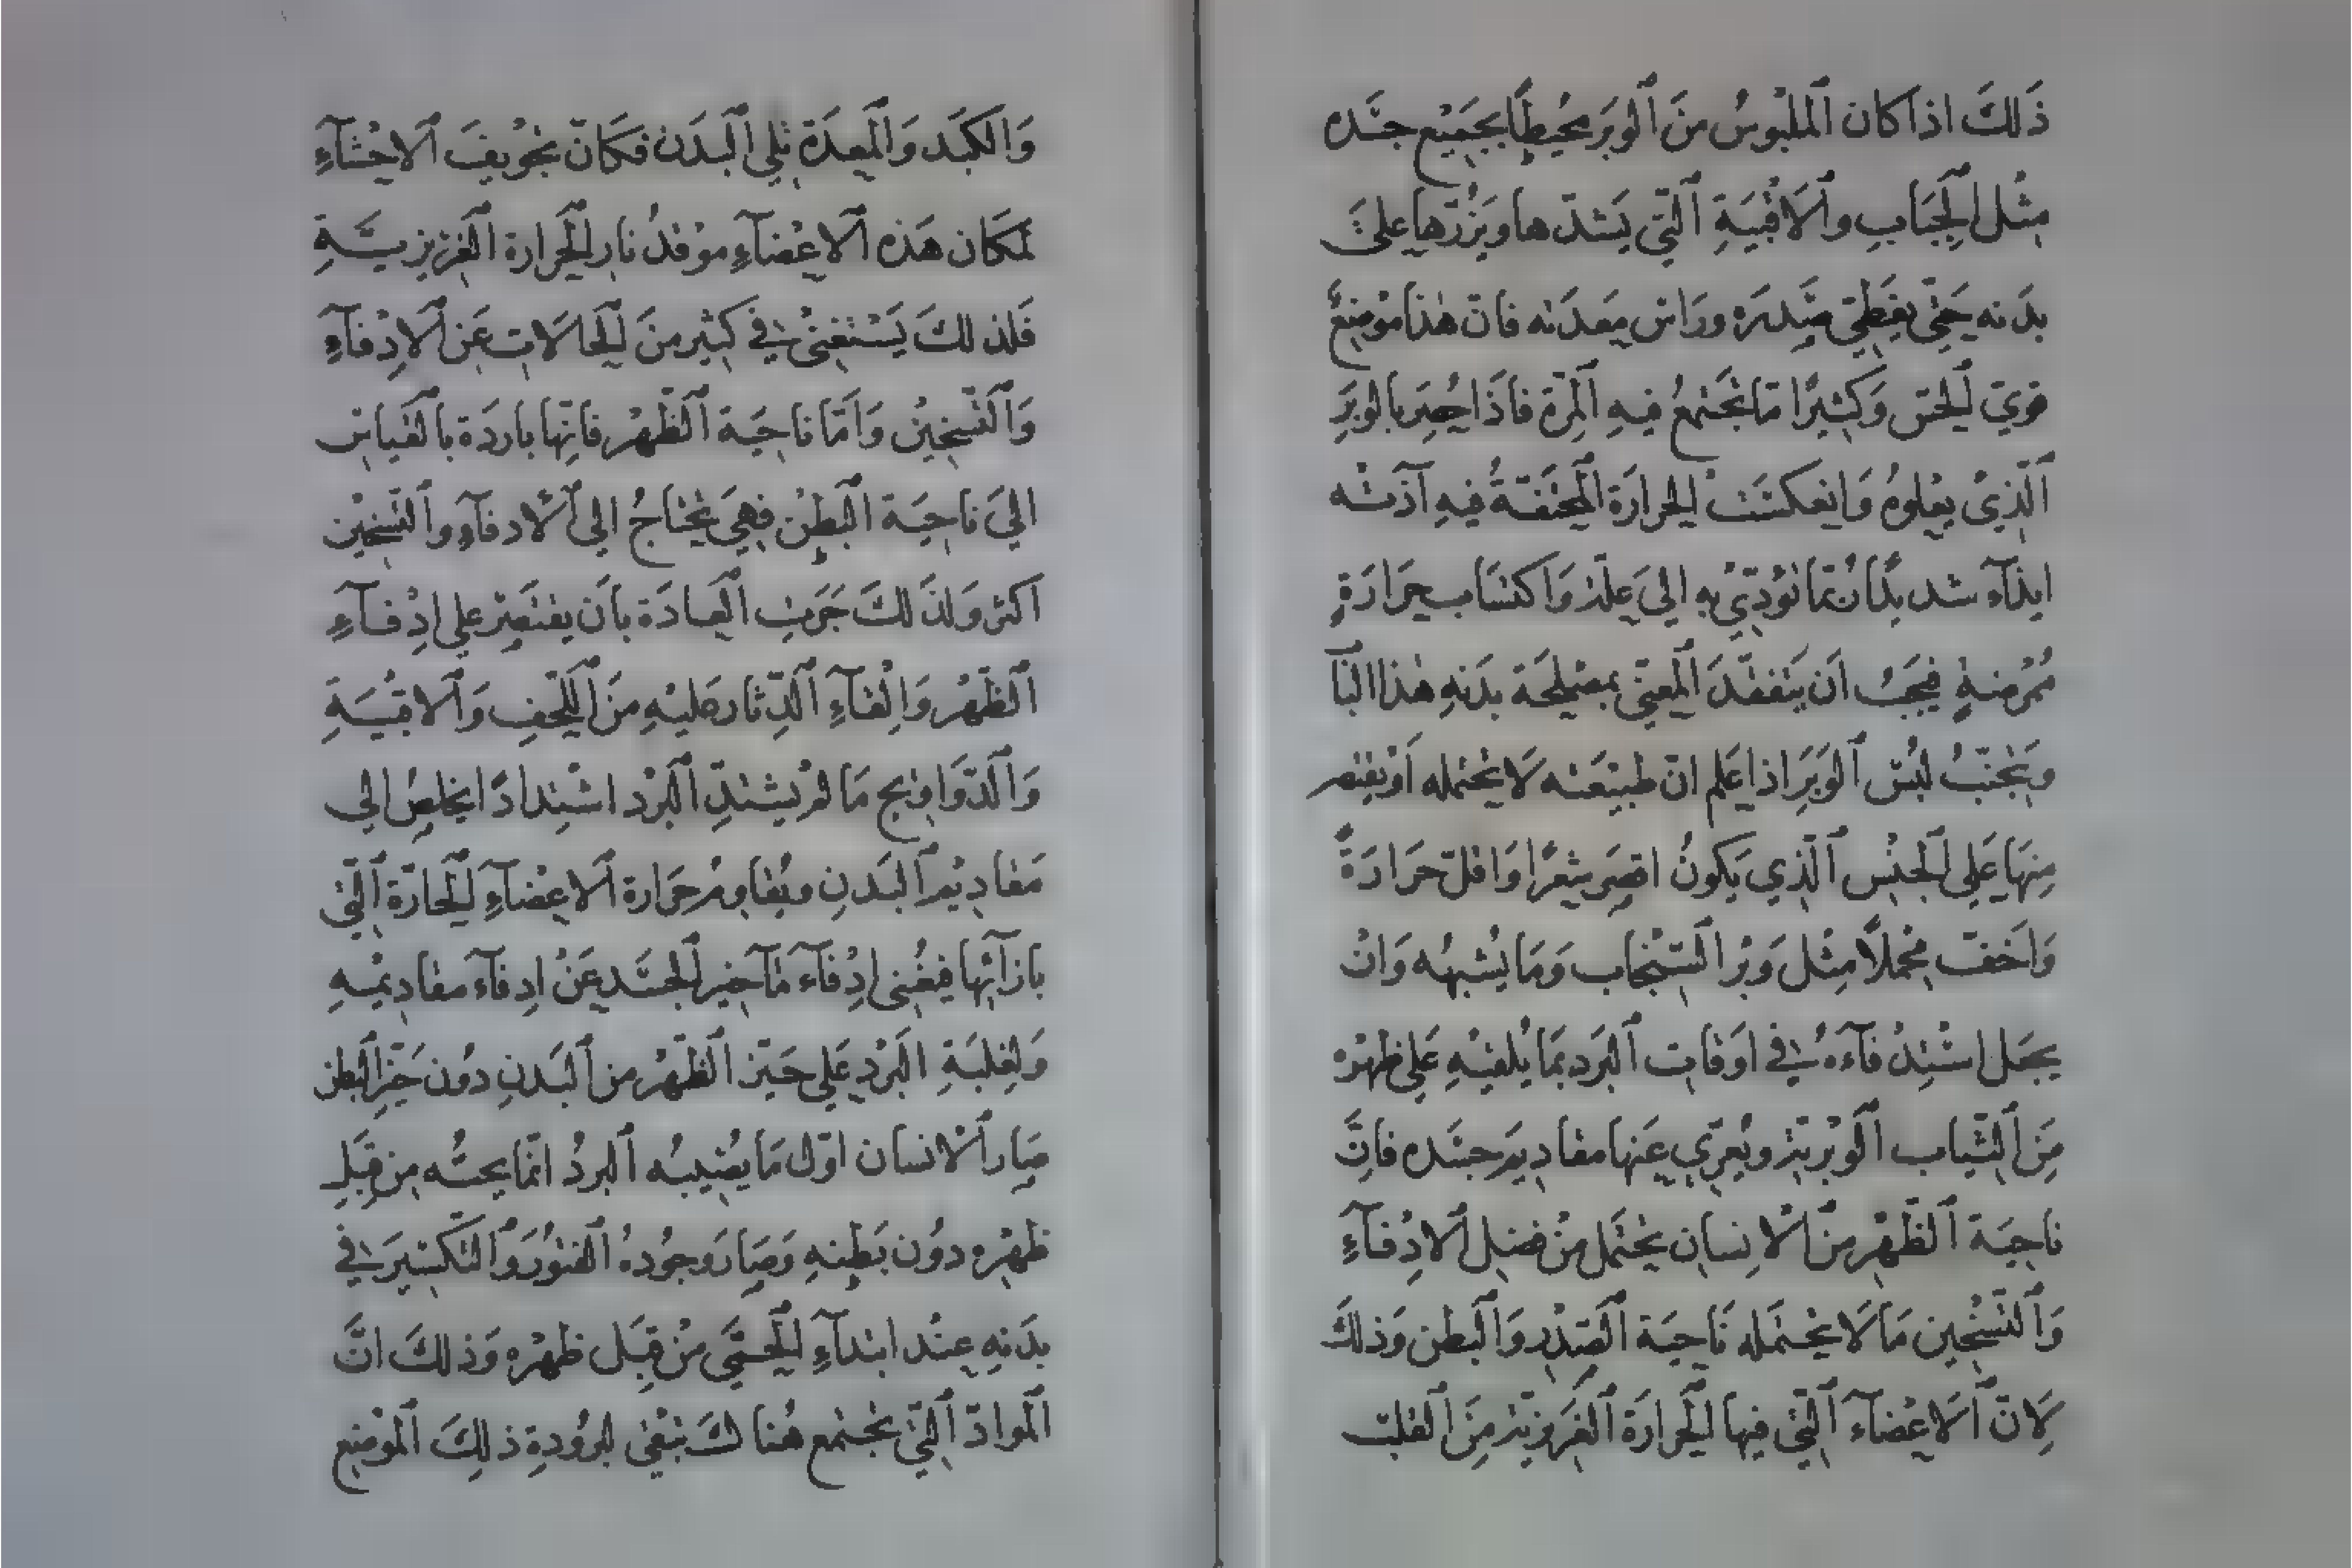 ذَلكَ اذا كان اَلملبُوسُ منَ اَلوبَر محُيطًا بجَميْع جسَده
مثْل الجِبَابِ والاَقبْيَةِ اَلتّي يَشدّها ويَزُرّها عليَ
بدَنه حَتّي يغَطِيّ صَدرَه ورَاسَ مِعَدَته فانّ هٰذا مَوْضعٌ
قويّ الحسّ وَكثيرًا مّا تَجَتمعُ فيهِ اَلمِرّة فاذَا حُصِرَ بالوبَرَ
اَلّذِيْ يعْلوهُ وَانعكسَتْ الحرارَة اَلمحتَقنةُ فيهِ آذَتْه
ايذآء شديدًا رُبّما تؤدّيْ به اليَ علّة وَاكتسَاب حرَارَةٍ
مُمْرضةٍ فيجَبُ اَن يَتفقّدَ اَلمعنّي بمصْلحَة بدَنهِ هٰذا البآ
ويَجْتنّبُ لبُسَ اَلوَبَرِ اذا عَلم انّ طبيْعَته لاَ يحْتمله اَو يقتصر
مِنهَا عَلي الجنْس اَلّذي يَكونُ اقصَر شعْرًا وَاقلّ حرَارَةً
وَاَخَفّ محْملاً مثْل وَبْر السّنْجاب وَمَا يُشْبهُه وَانْ
يجعَل اسْتدْفآءهُ في اوَقات اَلبَرَد بمَا يُلقيْهِ عَلي ظهْرِه
مِنَ الثّياب اَلوبْريّة ويُعرّي عَنها مقاديمَ جسَده فانّ
ناحيَة اَلظّهْر منَ اَلاْنسان يحْتَمل منْ فضْل اَلادْفآءِ
وَالتّسْخيْن مَا لاَ يحْتَمله نَاحيَة اَلصّدْر وَالَبطن وَذلكَ
لاَنّ اَلاَعْضآء اَلتّي فيها الحَرارَة اَلغَريزيّة مِنَ اَلقلب
وَالكبَد وَالَمعدَة تلي اَلبَدَن فكَانّ تجْويفَ اَلاحْشآءِ
لمكَان هَذه اَلاعْضآءِ موْقدُ نار الحَرارة اَلغَريزيّةِ
فَلذلكَ يَسْتغنيْ في كثيْر منَ الحَالاَت عَن اَلادْفآءِ
وَالتّسْخيْن وَاَمّا ناحيَة اَلظّهْر فانّها باردَة بالَقياس
اليَ ناحيَة اَلبَطنْ فهيَ تحْتاجُ الي اَلاْدفآءِ والتّسْخيْن
اكثر وَلذَلكَ جَرَت اَلعادَة باَن يقتَصرْ علي ادْفآءِ
اَلظّهْر وَاِلْقآءِ اَلدّثار عَليْهِ مِنَ اَللّحُف وَاَلاقبيَةِ
وَاَلدّوَاويج مَا لمْ يشتدّ اَلبَرْد اشْتدادًا يخلصُ الي
مَقاديْم اَلبَدَن ويُقاومُ حرَارة اَلاعْضآءِ الحَارّة اَلتّي
بازآئها فيغُني ادْفآء مآخير الجسَد عَنْ ادفآء مقاديمْهِ
وَلغلبَةِ اَلبَرْد عَلي حَيّز اَلظّهْر من اَلبَدَن دوُن حَيّزِ اَلبَطن
صَار اَلاْنسان اوّل مَا يصُيبُه اَلبَردُ انّما يحسّه من قبَلِ
ظهْره دوُن بَطنهِ وَصَارَ وجُودهُ اَلفتوُرَ وَالتّكسْيرَ في
بدَنهِ عنْد ابتدآءِ الحُمّيَ منْ قبَل ظهْره وَذلكَ انّ
اَلموادّ اَلتّي تجْتمع هُناكَ تبْقيْ لبرُودةِ ذلكَ اَلموْضع